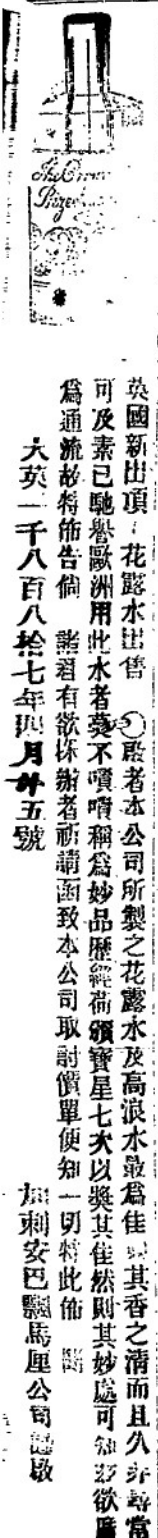 The Crown
英國新出頂 花露水出售 〇啟者本公司所製之花露水及高浪水最為佳 其香之清而且久非尋當
可及素已馳譽歐洲用此水者莫不嘖嘖稱為妙品歷經蒞頒寶星七次以獎其佳然則其妙處可知茲欲廣
為通流故特佈告倘 諸君有欲採辦者祈請函致本公司取討價單便知一切特此佈 聞
大英一千八百八拾七年四月廿五號 剌安巴飄馬厘公司謹啟